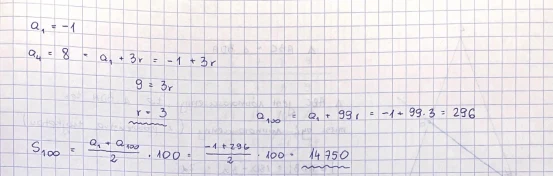 a₁ = -1
a₄ = 8 = a₁ + 3r = -1 + 3r
9 = 3r
r = 3
a₁₀₀ = a₁ + 99r = -1 + 99·3 = 296
S₁₀₀ = (a₁ + a₁₀₀)/2 · 100 = (-1 + 296)/2 · 100 = 14 750